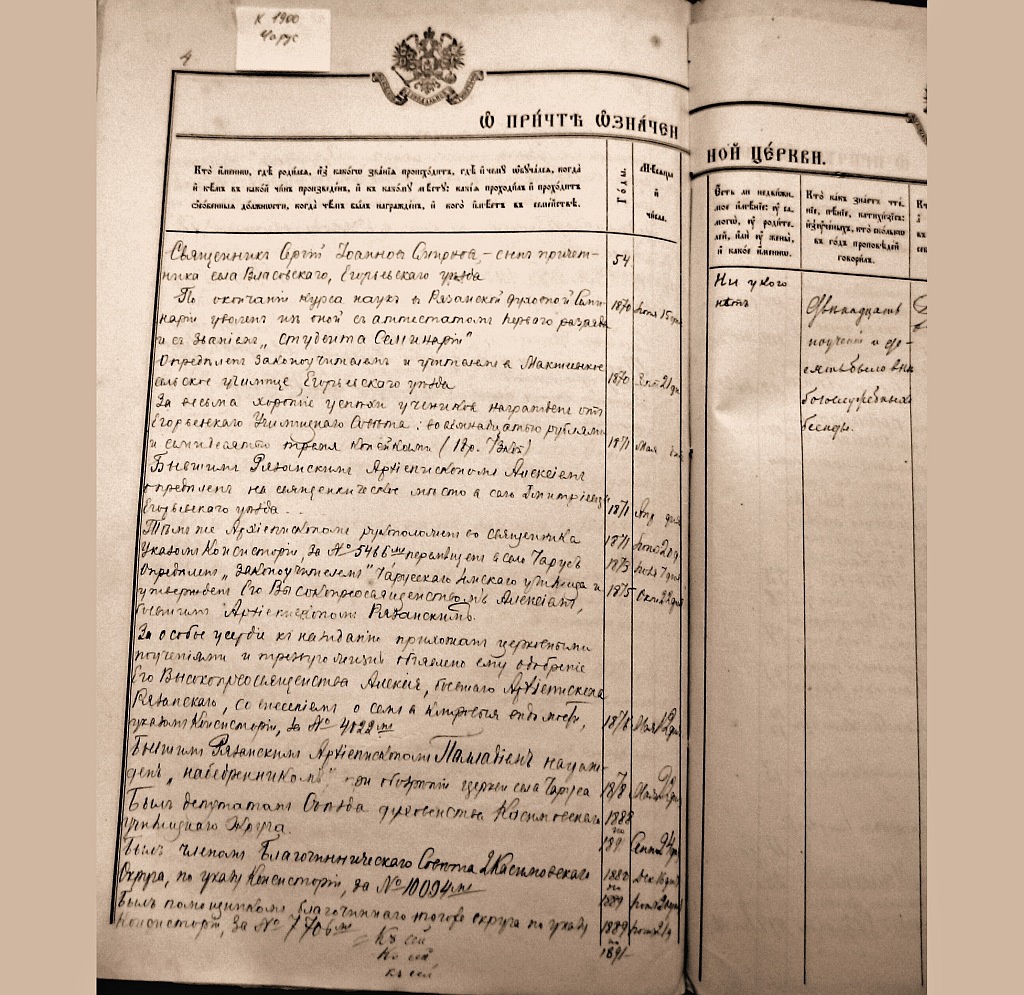 К 1900
Чарус
4
Ѡ ПРИ́ЧТѢ Ѡ҆ЗНА́ЧЕН
НОЙ ЦЕ́РКВИ.
Кто и҆́менно, гдѣ роди́лсѧ, и҆з̾ како́гѡ зва́нїѧ происхо́дитъ, гдѣ и҆ чемꙋ̀ ѡ҆бꙋча́лсѧ, когда̀
и҆ кѣ́мъ въ како́й чи́нъ произведе́нъ, и҆ къ како́мꙋ мѣ́стꙋ; какі̑ѧ проходи́лъ и҆ прохо́дитъ
ѡ҆со́бенныѧ до́лжности, когда̀ чѣ́мъ бы́лъ награжде́нъ, и҆ кого̀ и҆мѣ́етъ въ семе́йствѣ.
Го́ды.
Мѣ́сѧцы
и҆
чи́сла.
Є҆́сть ли недви́жи-
мое и҆мѣ́нїе: ᲂу҆ са-
могѡ̀, ᲂу҆ роди́те-
лей, и҆лѝ ᲂу҆ жены̀,
и҆ како́е и҆́менно.
Кто̀ ка́къ зна́етъ чте́-
нїе, пѣ́нїе, катихи́зисъ:
и҆з̾ꙋче́ныхъ, кто̀ ско́лькѡ
въ го́дъ проповѣ́дей
говори́лъ.
Священникъ Сергій Іоанновъ Смирновъ, – сынъ причет-
ника села Власовскаго, Егорьевскаго уѣзда
54
По окончаніи курса наукъ въ Рязанской духовной Семи-
наріи уволенъ изъ оной съ аттестатомъ перваго разряда
и съ званіемъ „студента Семинаріи“
1870 Іюля 15 дня
Опредѣленъ законоучителемъ и учителемъ въ
сельское училище, Егорьевскаго уѣзда
1870 21 дн
За весьма хорошіе успѣхи учениковъ награжденъ отъ
Егорьевскаго Училищнаго Совѣта: восемнадцатью рублями
и семидесятью тремя копѣйками (18р. 73коп)
1871 Мая
Бывшимъ Рязанскимъ Архіепископомъ Алексіемъ
опредѣленъ на священническое мѣсто въ село
Егорьевскаго уѣзда...
1871 Апр дня
Тѣмъ же Архіепископомъ рукоположенъ во священника
1871
Указомъ Консисторіи, за № 5466мъ перемѣщенъ въ село Чарусъ
1873 7 дня
Опредѣленъ „законоучителемъ“ Чарусскаго училища и
утвержденъ Его Высокопреосвященствомъ Алексіемъ,
бывшимъ Архіепископомъ Рязанскимъ.
1875 Окт 22 дня
За особое усердіе къ назиданію прихожанъ церковными
поученіями и трезвую жизнь объявлено ему одобреніе
Его Высокопреосвященства Алексія, бывшаго Архіепископа
Рязанскаго, со внесеніемъ о семъ въ клировыя вѣдомости,
указомъ Консисторіи, за № 4022мъ
1876 Мая 12 дня
Бывшимъ Рязанскимъ Архіепископомъ Палладіемъ награж-
денъ „набедренникомъ“ при обозрѣніи церкви села Чаруса
1878
Былъ депутатомъ Съѣзда духовенства Касимовскаго
училищнаго Округа.
1888
по
189 Сент 24 дн
Былъ членомъ Благочинническаго Совѣта 2 Касимовскаго
Округа, по указу Консисторіи, за № 10094мъ
1880 Дек 16 дня
по
1889
Былъ помощникомъ благочиннаго тогоже округа по указу
Консисторіи, за № 7706мъ
1889
по
1891
Къ сей
Къ сей
къ сей
Ни у кого
нѣтъ
Двѣнадцать
поученій и де-
сять было внѣ
богослужебныхъ
бесѣды.